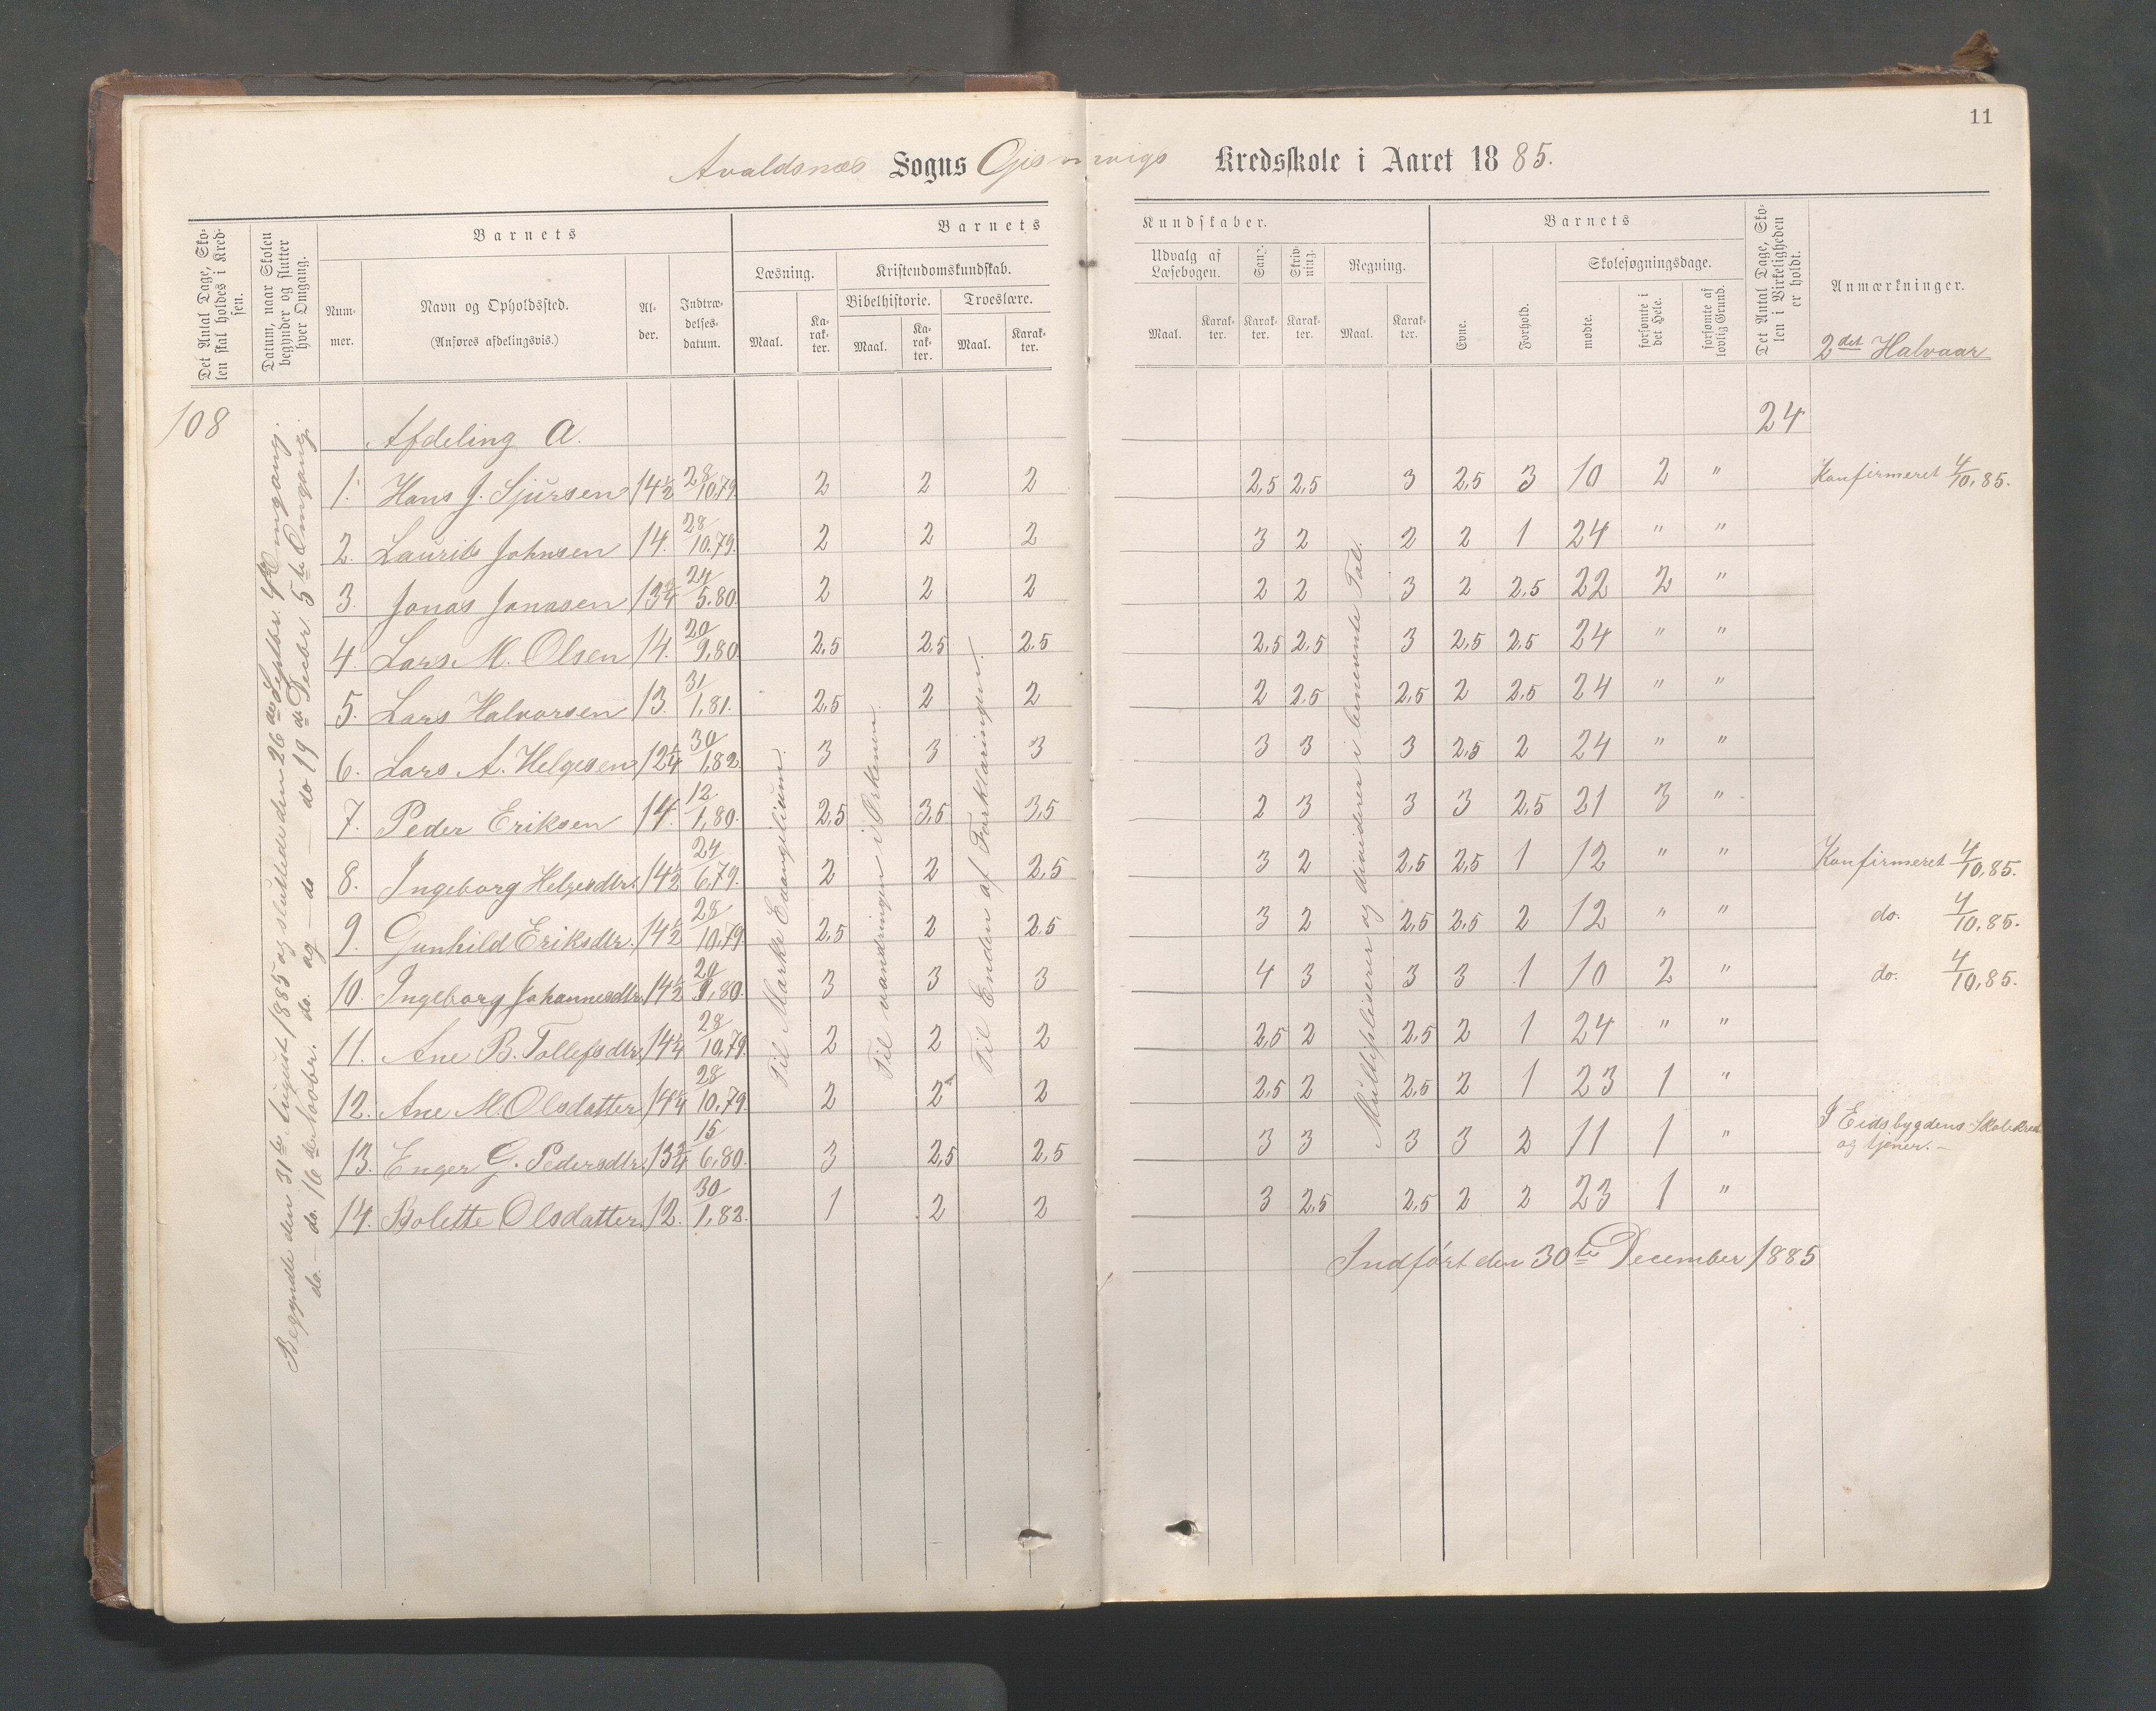 11
Avaldsnæs Sogns Gismervigs Kredsskole i Aaret 1885.
Det Antal Dage, Skolen skal holdes i Kredsen.
Datum, naar Skolen begynder og slutter hver Omgang.
Barnets
Nummer.
Navn og Opholdssted.
(Anføres afdelingsvis.)
Alder.
Indtrædelsesdatum.
Barnets Kundskaber.
Læsning.
Maal.
Karakter.
Kristendomskundskab.
Bibelhistorie.
Maal.
Karakter.
Troeslære.
Maal.
Karakter.
Udvalg af Læsebogen.
Maal.
Karakter.
Sang.
Karakter.
Skrivning.
Karakter.
Regning.
Maal.
Karakter.
Barnets
Evne.
Forhold.
Skolesøgningsdage.
mødte.
forsømte i det Hele.
forsømte af lovlig Grund.
Det Antal Dage, Skolen i Virkeligheden er holdt.
Anmærkninger.
2det Halvaar
108
Begyndte den 31te August 1885 og sluttede den 26de Septbr. 4de Omgang.
do. — do. 16de Novbr. do. og — do — do 19de Decbr. 5te Omgang.
Afdeling A.
24
1. Hans J. Sjursen 14½ 28/10,79. 2 2 2 2,5 2,5 3 2,5 3 10 2 " Konfirmeret 4/10,85.
2. Laurits Johnsen 14. 28/10.79. 2 2 2 3 2 2 2 1 24 " "
3. Jonas Jonasen 13¾ 24/5.80. 2 2 2 2 2 3 2 2,5 22 2 "
4. Lars M. Olsen 14. 20/9,80. 2,5 2,5 2,5 2,5 2,5 3 2,5 2,5 24 " "
5. Lars Halvorsen 13. 31/1,81. 2,5 2 2 2 2,5 2,5 2 2,5 24 " "
6. Lars A. Helgesen 12¼ 30/1,82. 3 3 3 3 3 3 2,5 2 24 " "
7. Peder Eriksen 14. 12/1,80. 2,5 3,5 3,5 2 3 3 3 2,5 21 3 "
8. Ingeborg Helgesdtr. 14½ 24/6,79. 2 2 2,5 3 2 2,5 2,5 1 12 " " Konfirmeret 4/10,85.
9. Gunhild Eriksdtr. 14½ 28/10,79. 2,5 2 2,5 3 2 2,5 2,5 2 12 " " do. 4/10,85.
10. Ingeborg Johannesdtr. 14½ 20/9,80. 3 3 3 4 3 3 3 1 10 2 " do. 4/10,85.
11. Ane B. Tollefsdtr. 14¼ 28/10,79. 2 2 2 2,5 2 2,5 2 1 24 " "
12. Ane M. Olsdatter 14¼ 28/10,79. 2 2 2 2,5 2 2,5 2 1 23 1 "
13. Enger G. Pedersdtr. 13¾ 15/6,80. 3 2,5 2,5 3 3 3 3 2 11 1 " I Eidsbygdens Skolekreds
og tjener. —
14. Bolette Olsdatter. 12. 30/1,82. 1 2 2 3 2,5 2,5 2 2 23 1 "
Til Marke Evangelium.
Til vandringen i Ørkenen.
Til Enden af Forklaringen.
Multipliserer og dividerer i benevnte Tal.
Indført den 30te December 1885